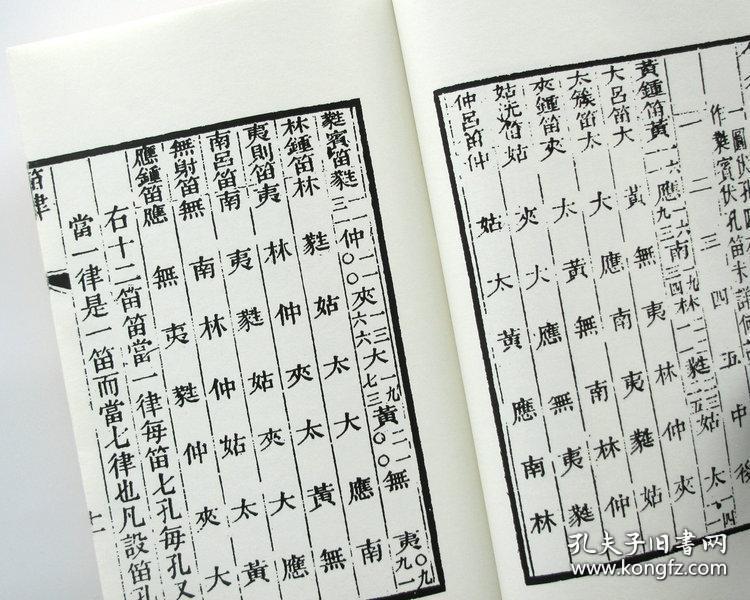 作蕤賓伏孔笛
一 二 三 四 五 中 後
黃鍾笛黃 應 南 林 蕤 姑 太
大呂笛大 黃 無 夷 林 仲 夾
太簇笛太 大 應 南 夷 蕤 姑
夾鍾笛夾 太 黃 無 南 林 仲
姑洗笛姑 夾 大 應 無 夷 蕤
仲呂笛仲 姑 太 黃 應 南 林
蕤賓笛蕤 仲 夾 大 黃 無 夷
林鍾笛林 蕤 姑 太 大 應 南
夷則笛夷 林 仲 夾 太 黃 無
南呂笛南 夷 蕤 姑 夾 大 應
無射笛無 南 林 仲 姑 太 黃
應鍾笛應 無 夷 蕤 仲 夾 大
右十二笛笛當一律每笛七孔每孔又
當一律是一笛而當七律也凡設笛孔
笛律
十一
孔夫子旧书网
www.kongfz.com